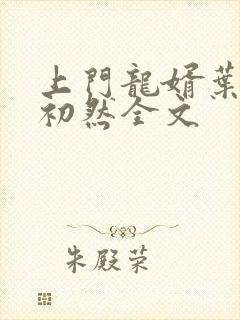 上門龍婿葉
初然全文
朱殿荣